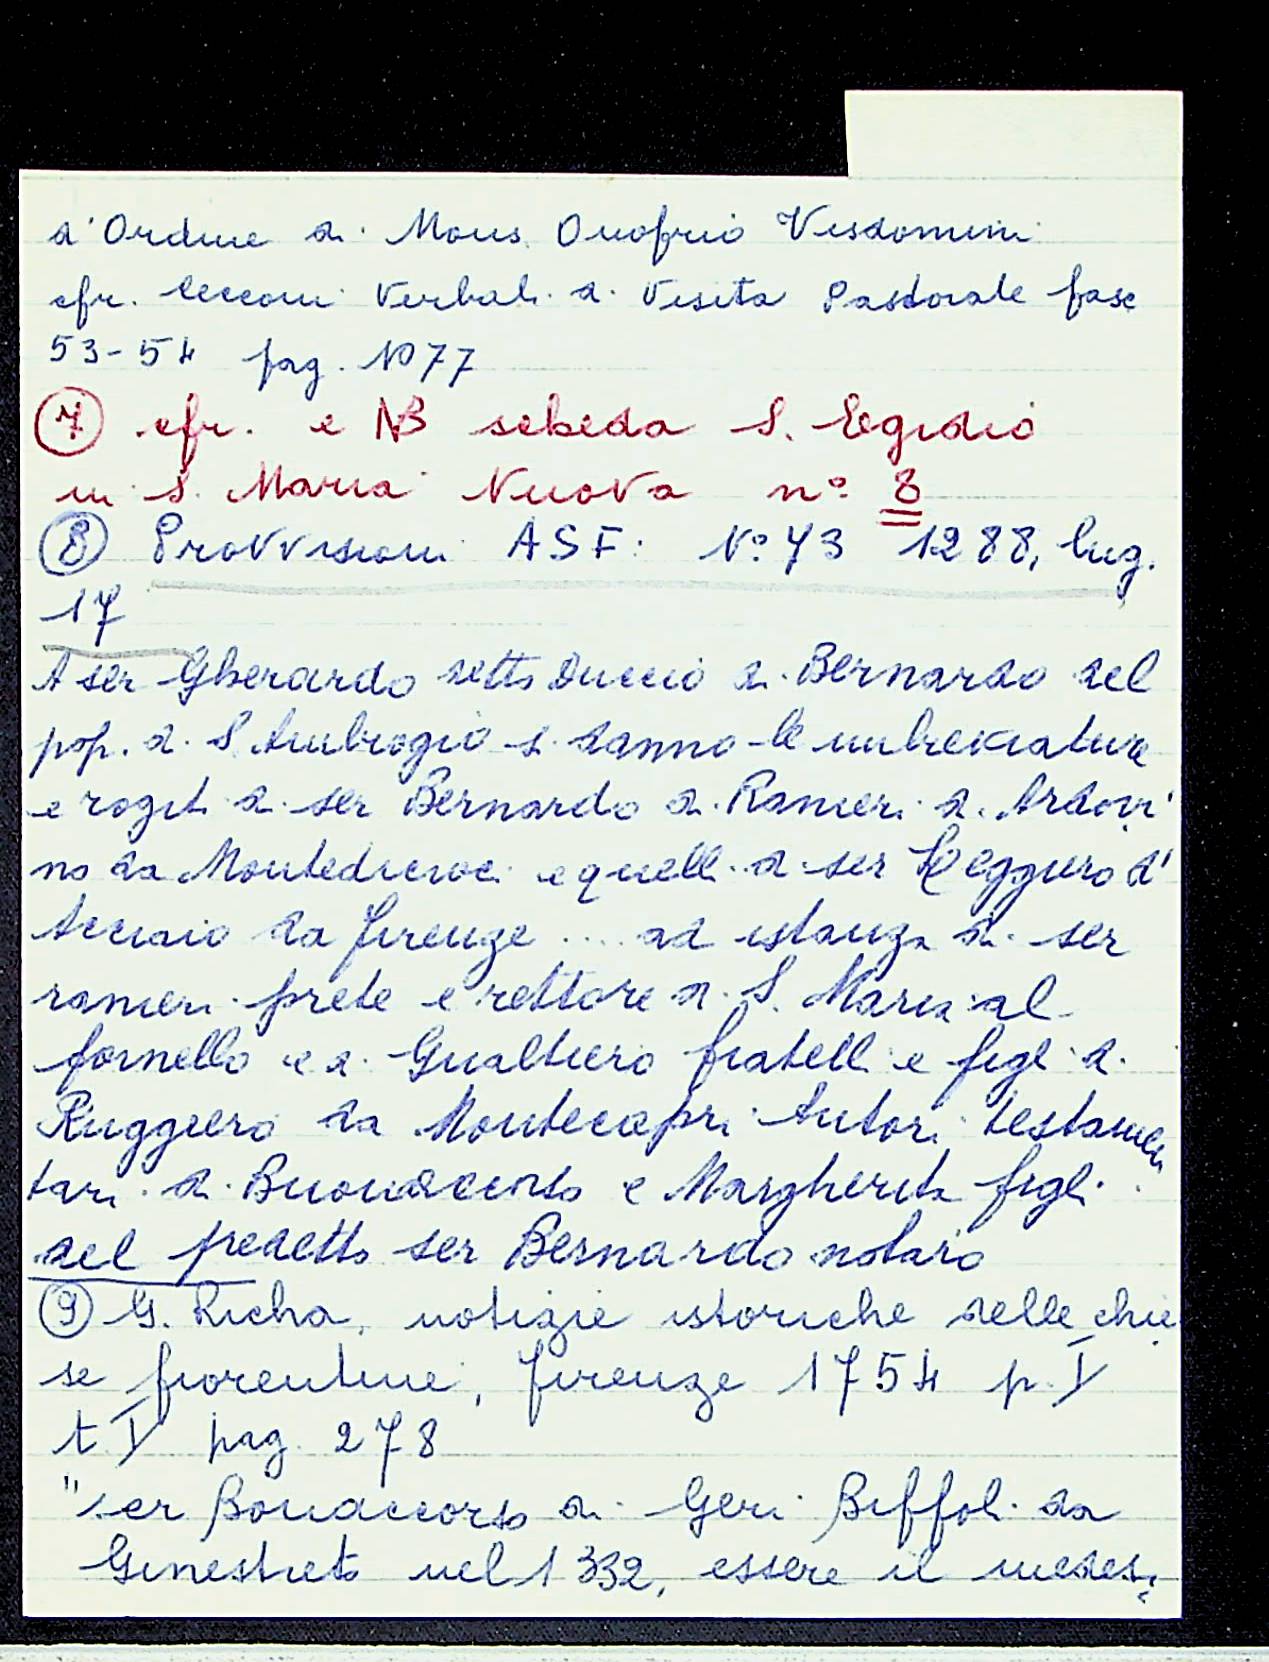 d'Ordine di Mons. Onofrio Visdomini
cfr. Cecconi Verbali di Visita Pastorale fasc
53-54 pag. 1077
⑦ cfr. e NB scheda S. Egidio
in S. Maria Nuova n° 8
⑧ Provvisioni ASF: N° 73 1288, lug.
17
A ser Gherardo detto Duccio di Bernardo del
pop. di S Ambrogio si danno le imbreviature
e rogiti di ser Bernardo di Ranieri di Ardovi
no da Montedicroci e quelli di ser Ruggiero d'
Acciaio da Firenze .... ad istanza di ser
ranieri prete e rettore di S. Maria al
fornello e di Gualtiero fratelli e figli di
Ruggiero da Montecapri tutori testamen
tari di Buonaccorso e Margherita figli
del predetto ser Bernardo notaio
⑨ G. Richa, notizie istoriche delle chie
se fiorentine, Firenze 1754 p. I
t. I pag. 278
"ser Bonaccorso di Geri Biffoli da
Ginestreto nel 1332, essere il medesi